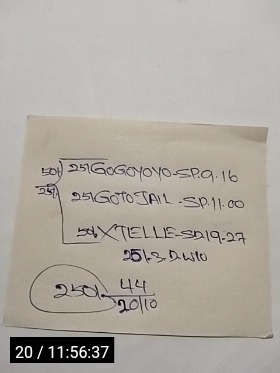 50/ 25/GOGOYOYO-SP.9.16
25/ 25/GOTOJAIL-SP.11.00
50/XTELLE-SD19-27
25/-3.D.W10
250/- 44
20/10
20 / 11:56:37